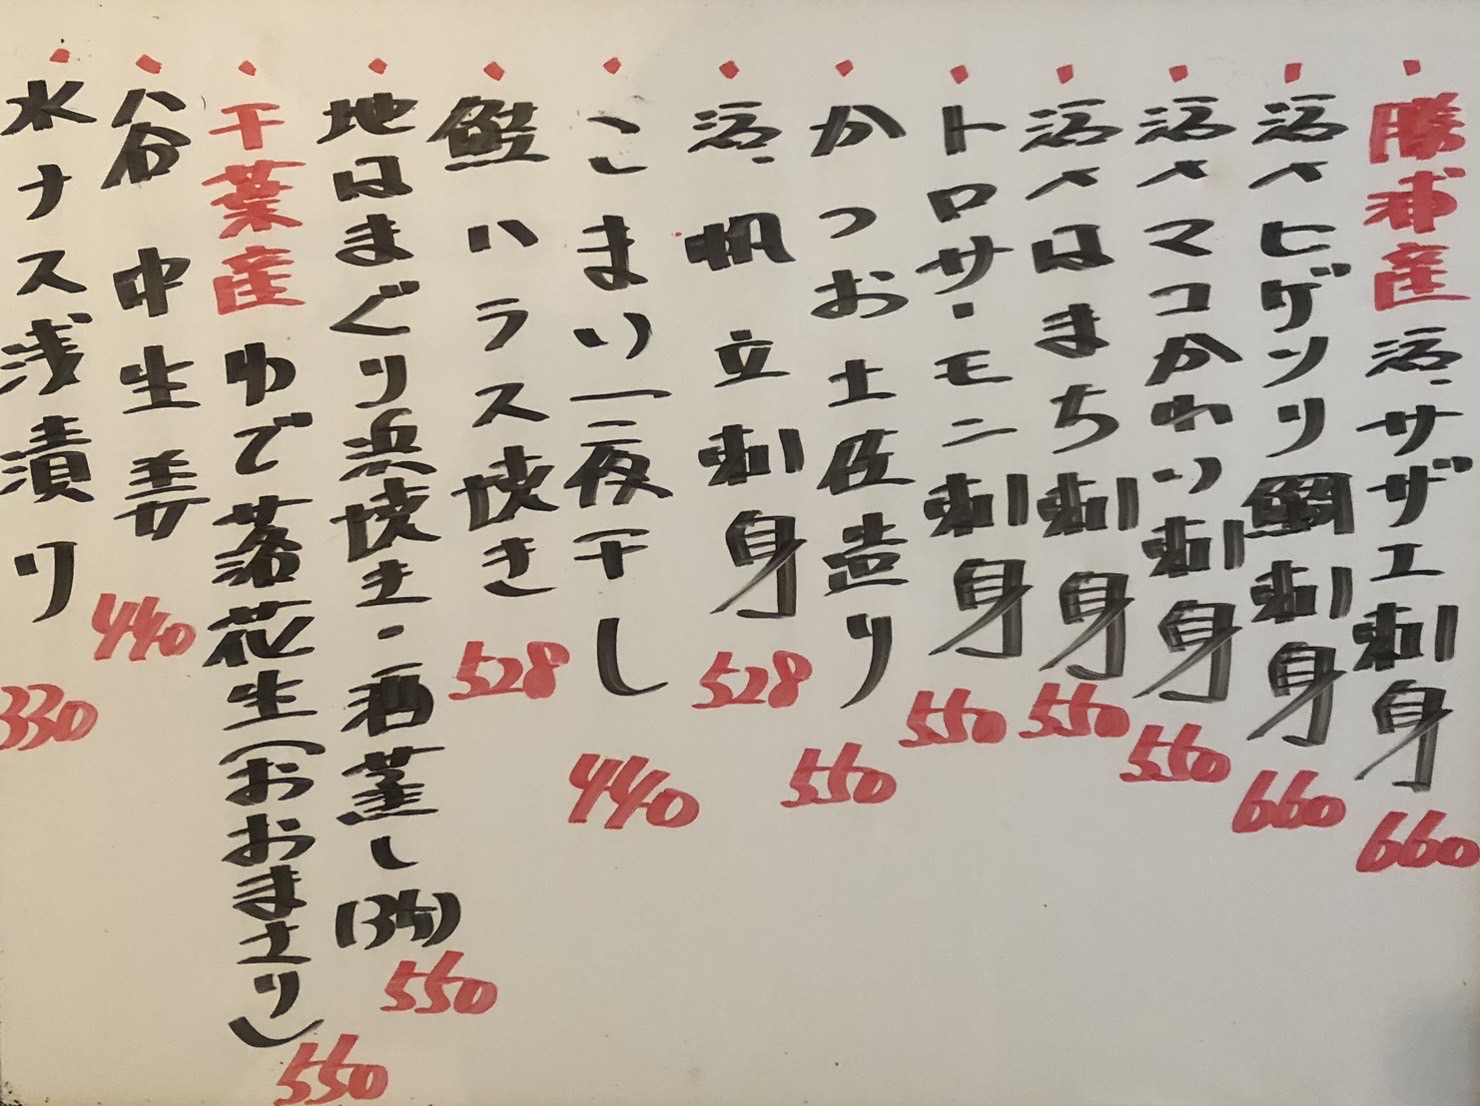 ・勝浦産 活サザエ刺身 660
・活〆ヒゲソリ鯛刺身 660
・活〆マコかわり刺身 550
・活〆はまち刺身 550
・トロサーモン刺身 550
・かつお土佐造り 550
・活帆立刺身 528
・こまい一夜干し 440
・鮭ハラス焼き 528
・地はまぐり浜焼き・酒蒸し(3ケ) 550
・千葉産 ゆで落花生(おおまさり) 550
・谷中生姜 440
・水ナス浅漬り 330